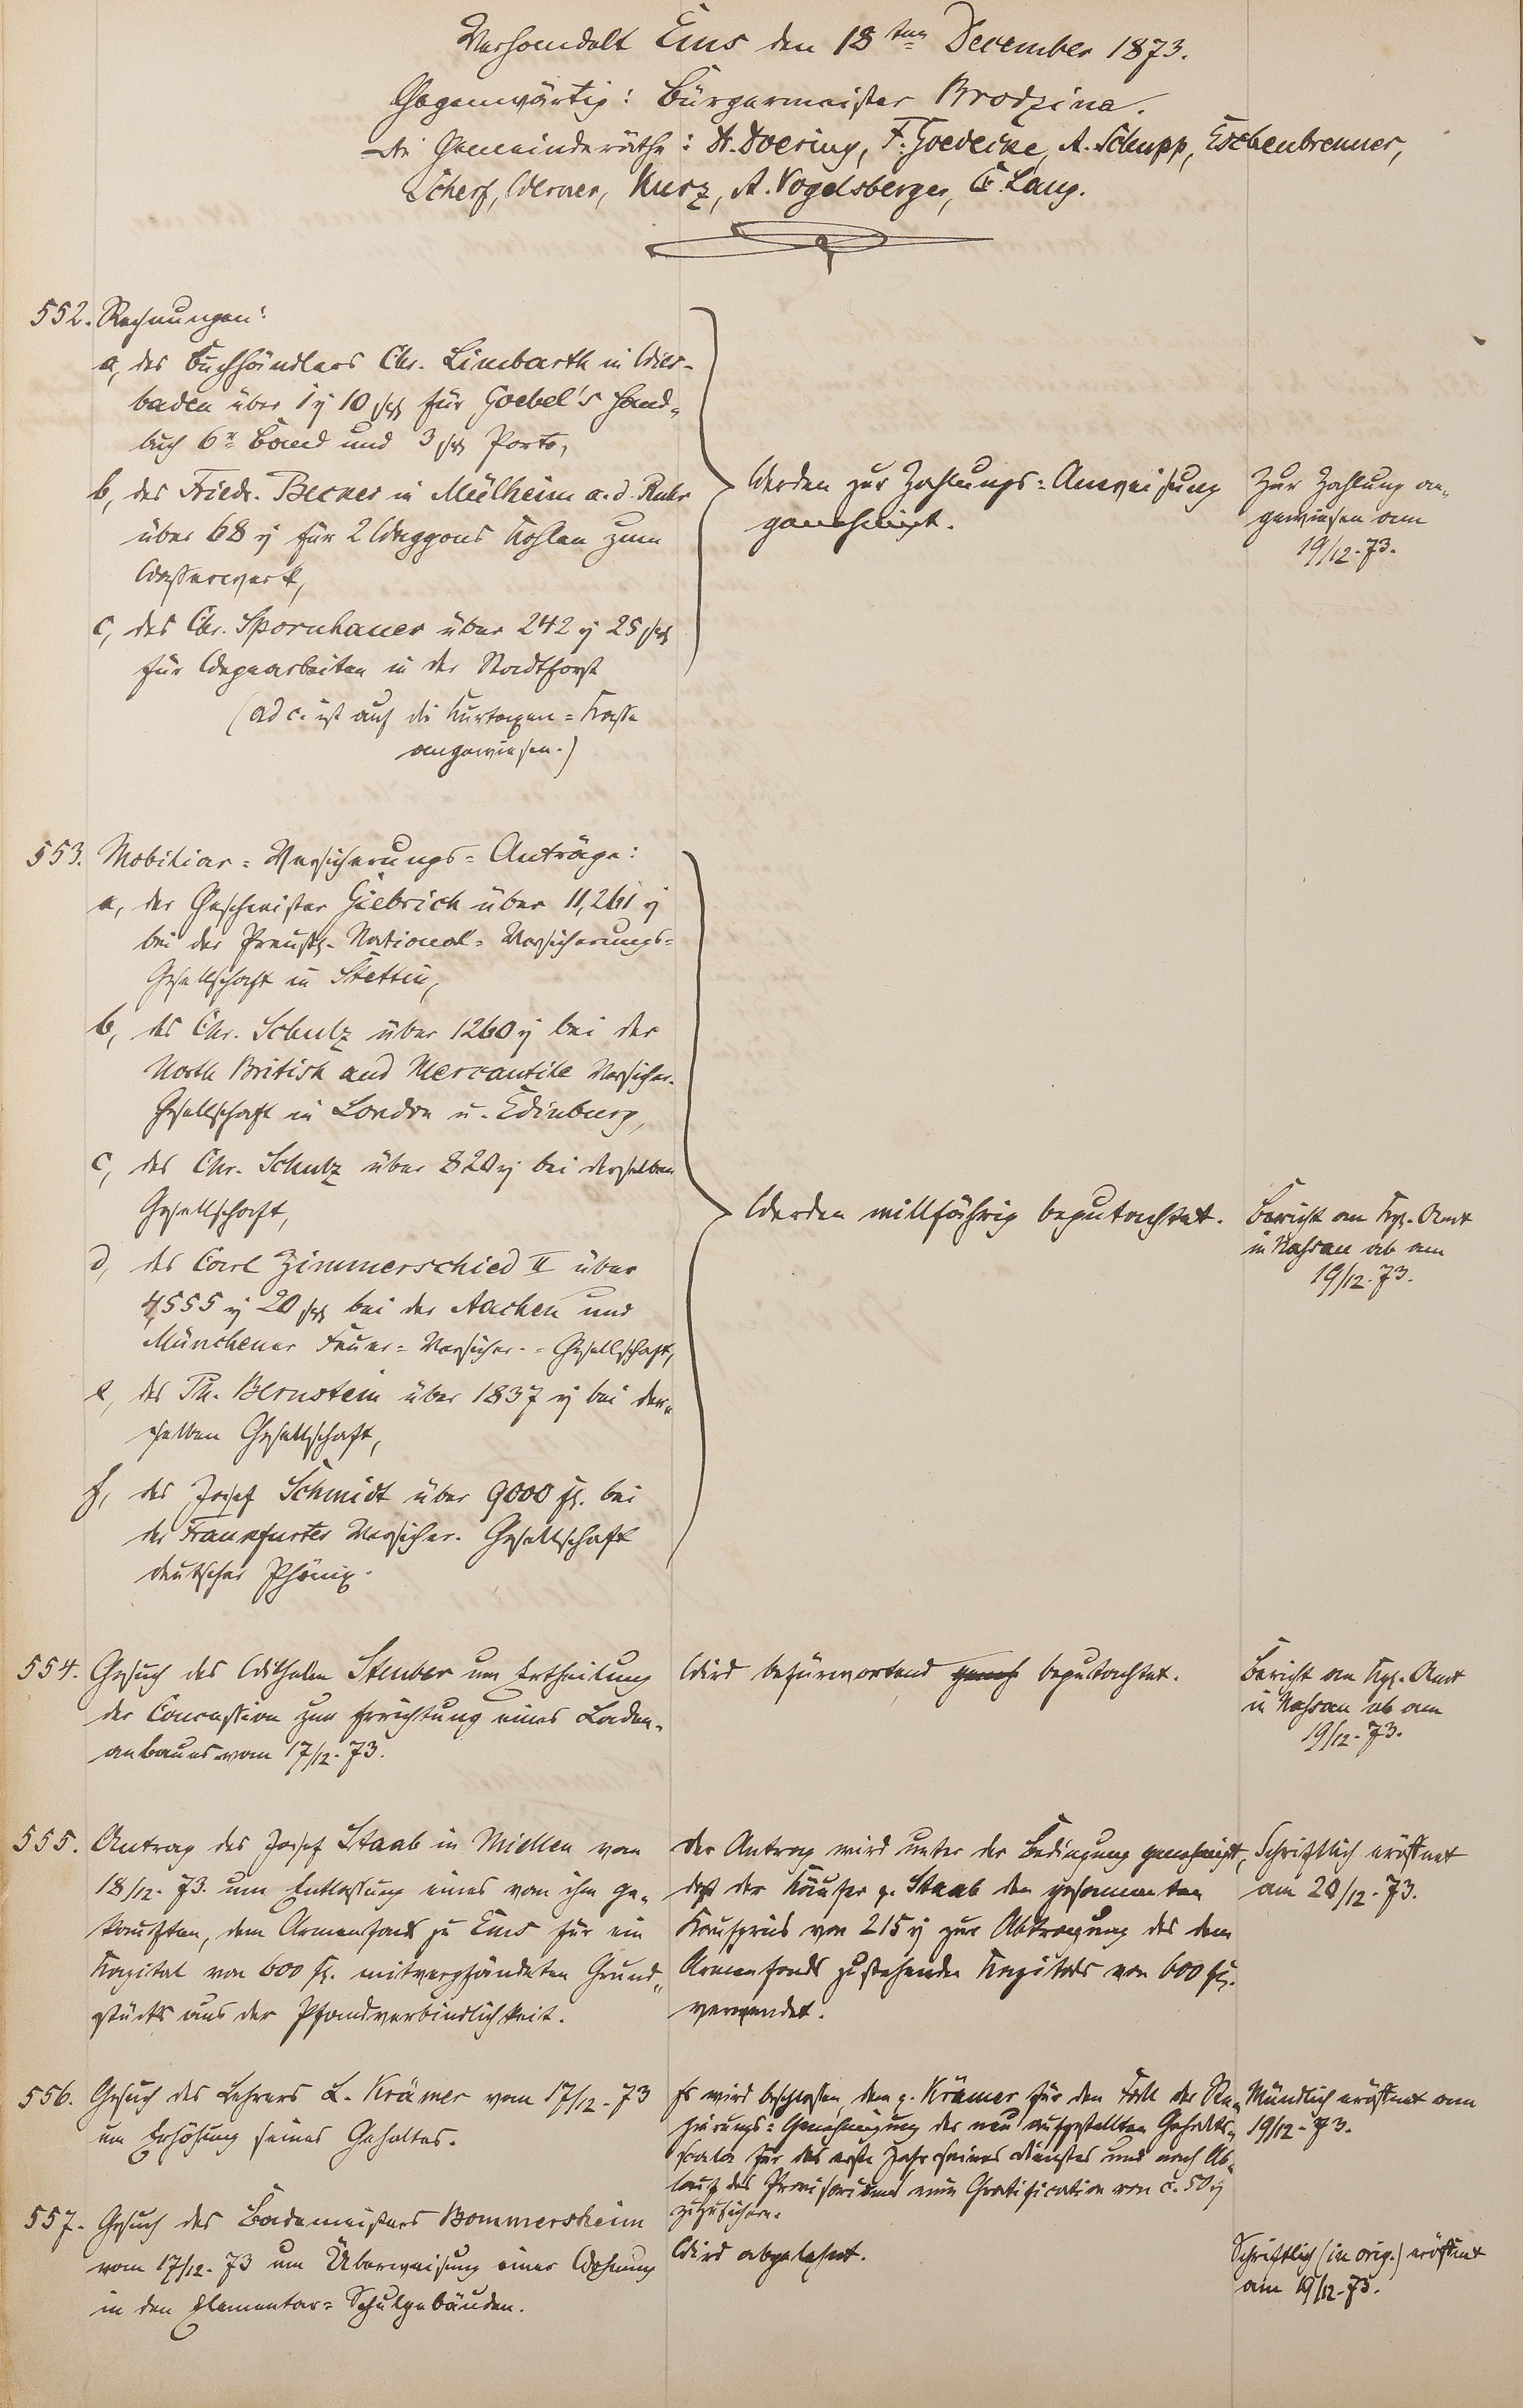 Verhandelt Ems den 18ten December 1873.
Gegenwärtig: Bürgermeister Brodzina.
die Gemeinderäthe: Dr. Doering, F. Goedecke, A. Schupp, Eschenbrenner,
Scherf, Werner, Kurz, A. Vogelsberger, C. Lang.
552. Rechnungen:
a, des Buchhändlers Chr. Limbarth in Wies-
baden über 1 10 Sgr für Goebel's Hand-
buch 6r Band und 3 Sgr Porto,
b, des Friedr. Becker in Mülheim a. d. Ruhr
über 68 für 2 Waggons Kohlen zum
Wasserwerk,
c, des Chr. Spornhauer über 242 25 Sgr
für Wegearbeiten in der Stadtforst
(ad c. ist auf die Kurtaxen=Kasse
angewiesen.)
Werden zur Zahlungs=Anweisung
genehmigt.
Zur Zahlung an-
gewiesen am
19/12. 73.
553. Mobiliar=Versicherungs=Anträge:
a, der Geschwister Giebrich über 11,261
bei der Preuß. National=Versicherungs=
Gesellschaft in Stettin,
b, des Chr. Schulz über 1260 bei der
North British and Mercantile Versicher.
Gesellschaft in London u. Edinburg,
c, des Chr. Schulz über 820 bei derselben
Gesellschaft,
d, des Carl Zimmerschied II über
4,555 20 Sgr bei der Aachen und
Münchener Feuer=Versicher.=Gesellschaft,
e, des Th. Bernstein über 1837 bei der-
selben Gesellschaft,
f, des Josef Schmidt über 9000 fl. bei
der Frankfurter Versicher. Gesellschaft
deutscher Phönix.
Werden willfährig begutachtet.
Bericht an Kgl. Amt
in Nassau ab am
19/12. 73.
554. Gesuch des Wilhelm Steuber um Ertheilung
der Concession zur Errichtung eines Laden-
anbaues vom 17/12. 73.
Wird befürwortend begutachtet.
Bericht an Kgl. Amt
in Nassau ab am
19/12. 73.
555. Antrag des Josef Staab in Miellen vom
18/12. 73. um Entlassung eines von ihm ge-
kauften, dem Armenfond zu Ems für ein
Kapital von 600 fl. mitverpfändeten Grund-
stücks aus der Pfandverbindlichkeit.
Der Antrag wird unter der Bedingung genehmigt,
daß der Käufer p. Staab den gesammten
Kaufpreis von 215 zur Abtragung des dem
Armenfonds zustehenden Kapitals von 600 fl.
verwendet.
Schriftlich eröffnet
am 20/12. 73.
556. Gesuch des Lehrers L. Krämer vom 17/12. 73
um Erhöhung seines Gehaltes.
Es wird beschlossen, dem p. Krämer für den Fall der Re-
gierungs=Genehmigung der neu aufgestellten Gehalts-
scala für das erste Jahr seines Dienstes und nach Ab-
lauf des Provisoriums eine Gratification von c. 50
zuzusichern.
Mündlich eröffnet am
19/12. 73.
557. Gesuch des Bademeisters Bommersheim
vom 17/12. 73 um Überweisung einer Wohnung
in den Elementar=Schulgebäuden.
Wird abgelehnt.
Schriftlich (in orig.) eröffnet
am 19/12. 73.